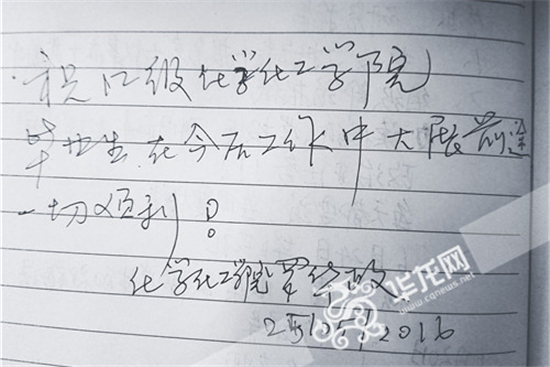 祝12级化学化工学院
毕业生在今后工作中大展前途
一切顺利！
化学化工学院
2016
华龙网
www.cqnews.net